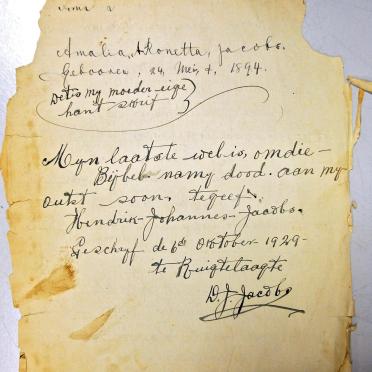 Amalia, Aronetta, Jacobs.
Gebooren, 24, Mei, 1894.
Det is my moeder eige
hant scrif
Myn laatste wel is, omdie –
Bijbel na my dood. aan my
outst soon. tegeef.
Hendrik Johannes Jacobs.
Geschryf de 6de October 1929 –
te Ruigtelaagte
D. J. Jacobs